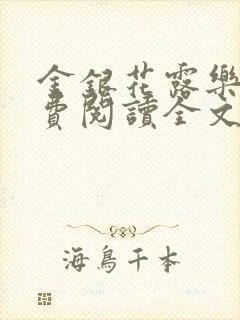 金銀花露樂
費閱讀全文
海鳥千本